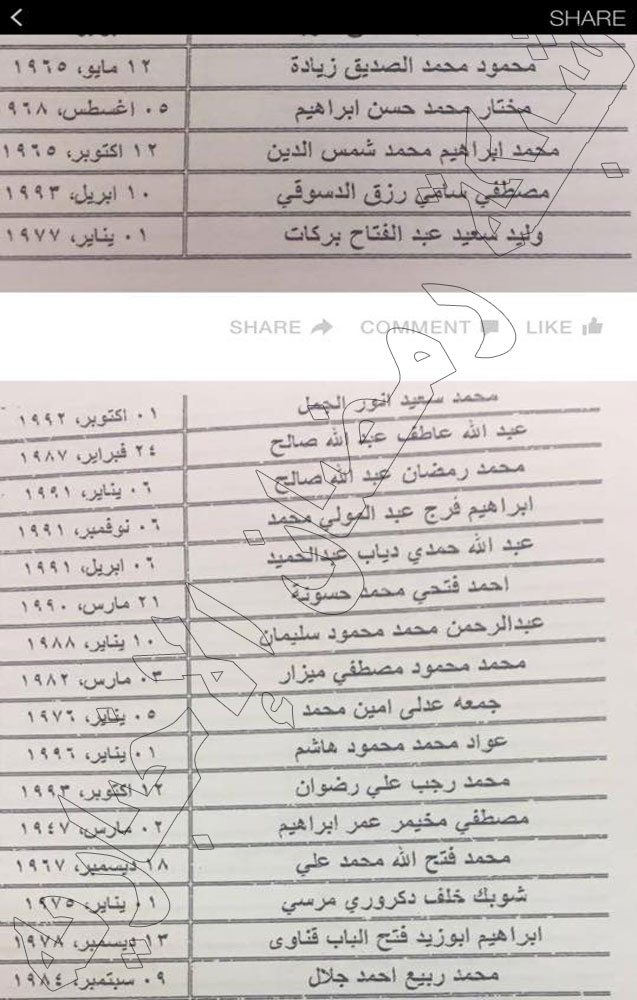 SHARE
محمود محمد الصديق زيادة ١٢ مايو، ١٩٦٥
مختار محمد حسن ابراهيم ٠٥ اغسطس، ١٩٦٨
محمد ابراهيم محمد شمس الدين ١٢ اكتوبر، ١٩٦٥
مصطفي سامي رزق الدسوقي ١٠ ابريل، ١٩٩٣
وليد سعيد عبد الفتاح بركات ٠١ يناير، ١٩٧٧
SHARE COMMENT LIKE
محمد سعيد انور الجمل ٠١ اكتوبر، ١٩٩٢
عبد الله عاطف عبد الله صالح ٢٤ فبراير، ١٩٨٧
محمد رمضان عبد الله صالح ٠٦ يناير، ١٩٩١
ابراهيم فرج عبد المولي محمد ٠٦ نوفمبر، ١٩٩١
عبد الله حمدي دياب عبدالحميد ٠٦ ابريل، ١٩٩١
احمد فتحي محمد حسونة ٢١ مارس، ١٩٩٠
عبدالرحمن محمد محمود سليمان ١٠ يناير، ١٩٨٨
محمد محمود مصطفي ميزار ٠٣ مارس، ١٩٨٢
جمعه عدلى امين محمد ٠٥ يناير، ١٩٧٦
عواد محمد محمود هاشم ٠١ يناير، ١٩٩٦
محمد رجب علي رضوان ١٢ اكتوبر، ١٩٩٣
مصطفي مخيمر عمر ابراهيم ٠٢ مارس، ١٩٤٧
محمد فتح الله محمد علي ١٨ ديسمبر، ١٩٦٧
شوبك خلف دكروري مرسي ٠١ يناير، ١٩٧٥
ابراهيم ابوزيد فتح الباب قناوى ١٣ ديسمبر، ١٩٧٨
محمد ربيع احمد جلال ٠٩ سبتمبر، ١٩٨٤